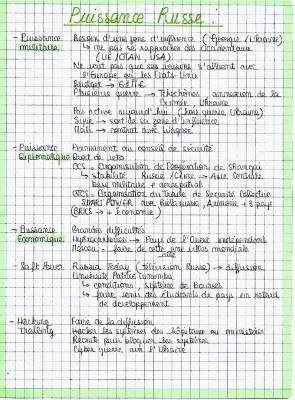 Puissance Russe :
- Puissance militaire
Besoin d'une zone d'influence (Georgie/Ukraine)
↳ ne pas se rapprocher des Occidentaux
(UE/OTAN, USA)
Ne veut pas que ses voisins s'allient avec
l'Europe ou les États-Unis
Budget →
Plusieurs guerre → Tchétchénie, annexion de la
Crimée, Ukraine
Pas active aujourd'hui (hors guerre Ukraine)
Syrie → sort de sa zone d'influence
Mali → contrat avec Wagner
- Puissance diplomatique
Permanent au conseil de sécurité
Droit de veto
OCS = Organisation de Coopération de Shanghai
↳ stabilité Russie/Chine → Asie Centrale
base militaire +
OTSC = Organisation du Traité de Sécurité Collective
avec Biélorussie, Arménie + 3 pays
(BRICS → + Économie)
- Puissance Economique
Grandes difficultés
Hydrocarbures → Pays de l'Ouest indépendant
Moscou → faire de cette une villes mondiale
ville
- Soft Power
Russia Today (télévision Russe) → diffusion
Université Patrice Lumumba
↳ conditions, système de Bourses
↳ faire venir des étudiants de pays en retard
de développement.
- Hacking trolling
Faire de la diffusion
Hacker les systèmes des hôpitaux ou ministères
Recruté pour bloquer les systèmes
Cyber guerre sur l'Ukraine